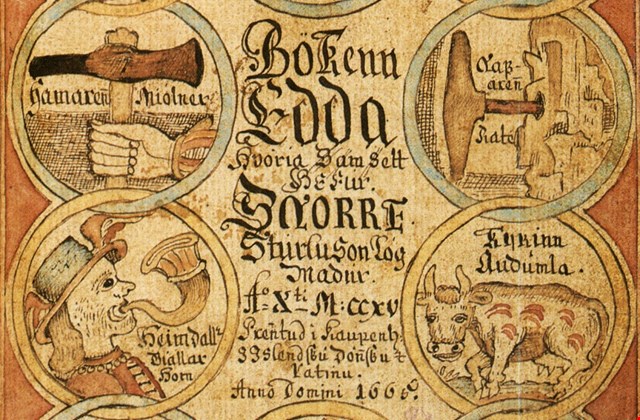 Hamareñ Miolner
Bókenn
Edda
Hvoria Samsett
Hefur
SNORRE
Sturluson Log
madur.
Aº Xti M:ccxv
Prentud i Kaupenh:
Islendsku Donsku &
Latinu.
Anno Domini 166
Naf=
areñ
Rate
Heimdallr
Giallar
Horn
Kyrinn
Audumla.